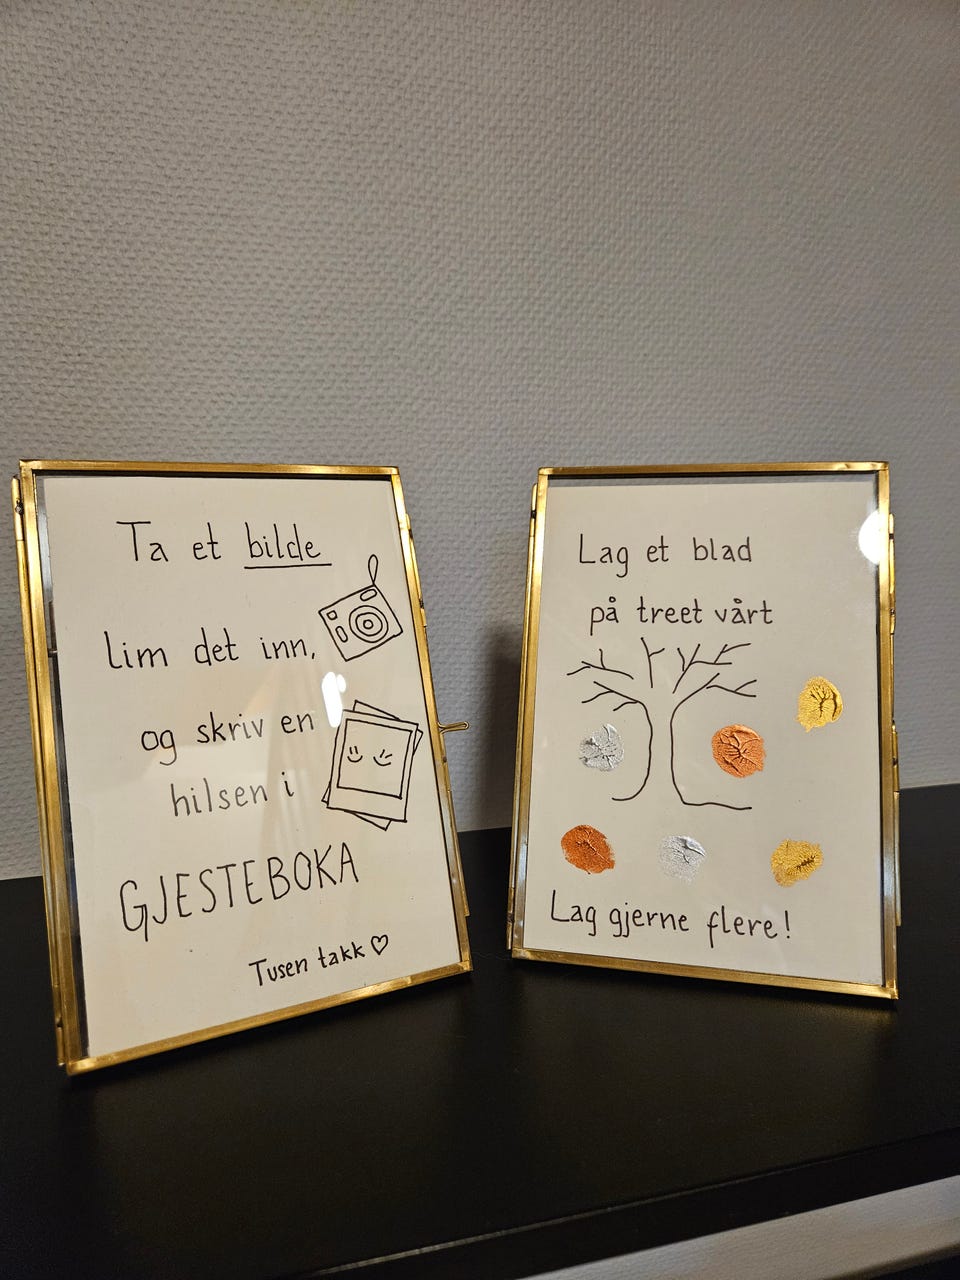 Ta et bilde
lim det inn,
og skriv en
hilsen i
GJESTEBOKA
Tusen takk ♡
Lag et blad
på treet vårt
Lag gjerne flere!